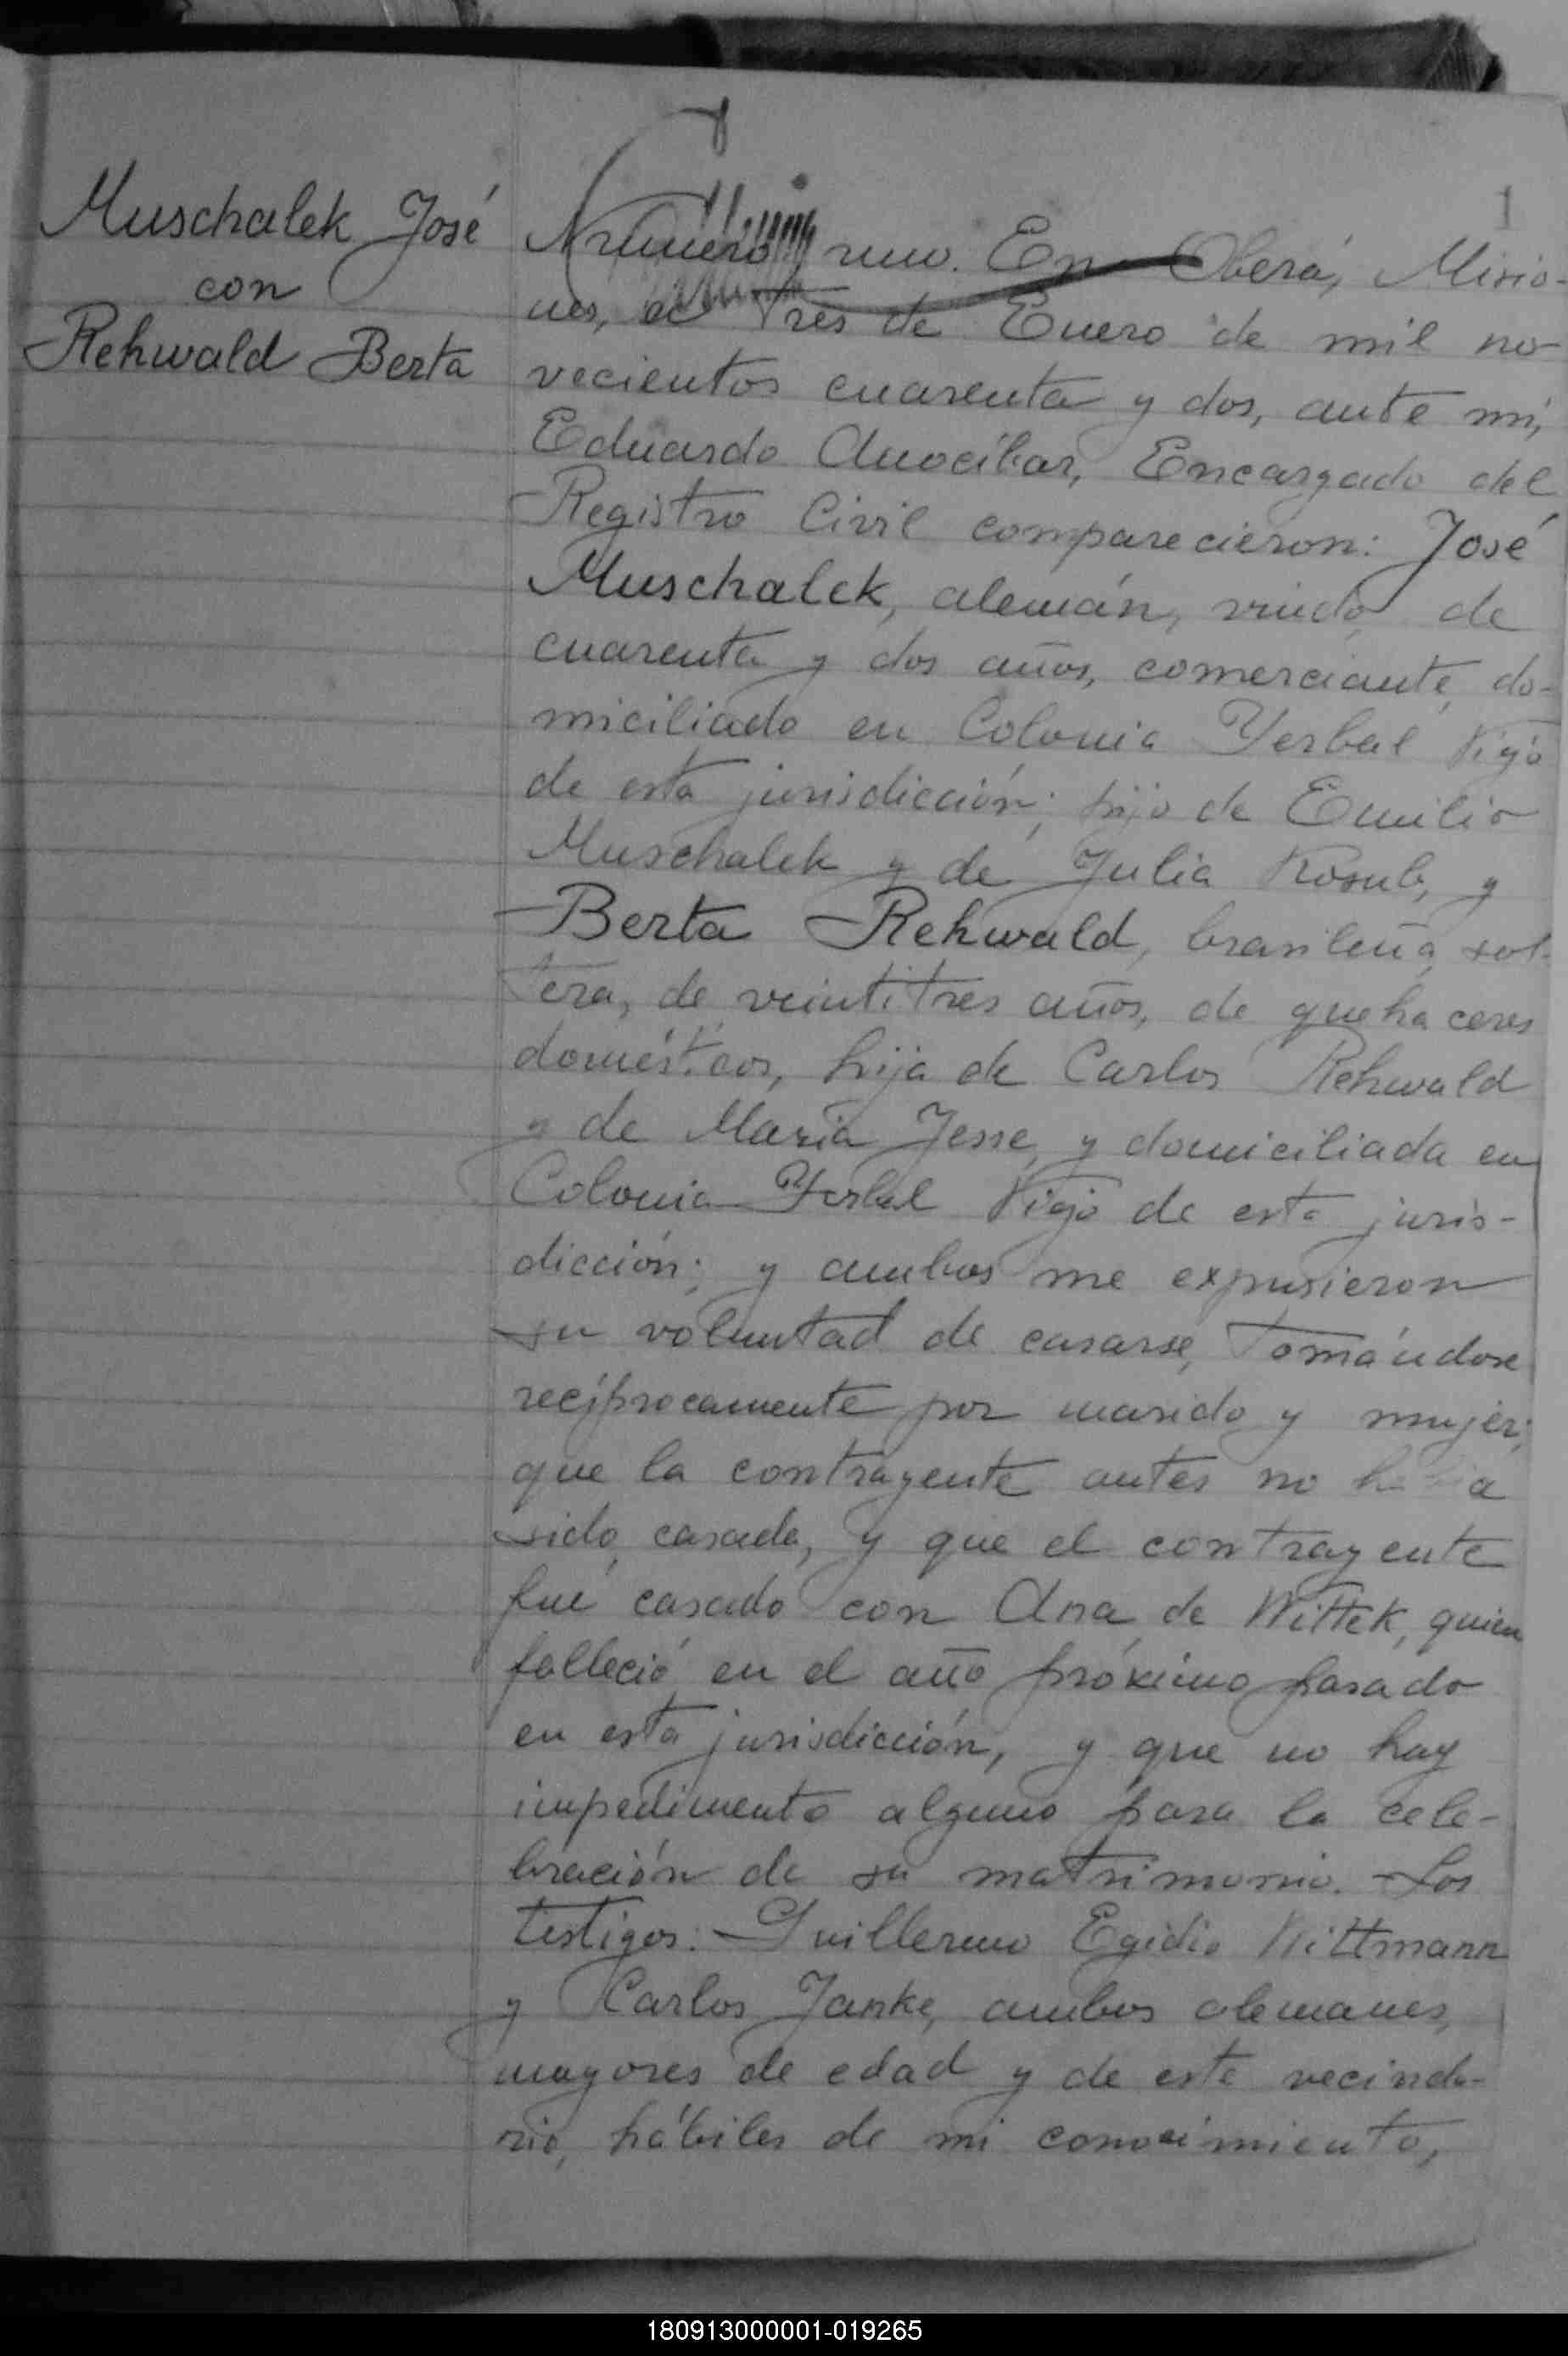 1
Muschalek José
con
Rehwald Berta
Número uno. En Oberá, Misio-
nes, a tres de Enero de mil no-
vecientos cuarenta y dos, ante mí,
Eduardo Anocíbar, Encargado del
Registro Civil comparecieron: José
Muschalek, alemán, viudo, de
cuarenta y dos años, comerciante, do-
miciliado en Colonia Yerbal Viejo
de esta jurisdicción; hijo de Emilio
Muschalek y de Julia Kosub, y
Berta Rehwald, brasileña, sol-
tera, de veintitres años, de quehaceres
domésticos, hija de Carlos Rehwald
y de Maria Jesse, y domiciliada en
Colonia Yerbal Viejo de esta juris-
dicción; y ambos me expusieron
su voluntad de casarse, tomándose
recíprocamente por marido y mujer;
que la contrayente antes no había
sido casada, y que el contrayente
fué casado con Ana de Wittek, quien
falleció en el año próximo pasado
en esta jurisdicción, y que no hay
impedimento alguno para la cele-
bración de su matrimonio. Los
testigos: Guillermo Egidio Wittmann
y Carlos Janke, ambos alemanes,
mayores de edad y de este vecinda-
rio, hábiles de mi conocimiento,
180913000001-019265